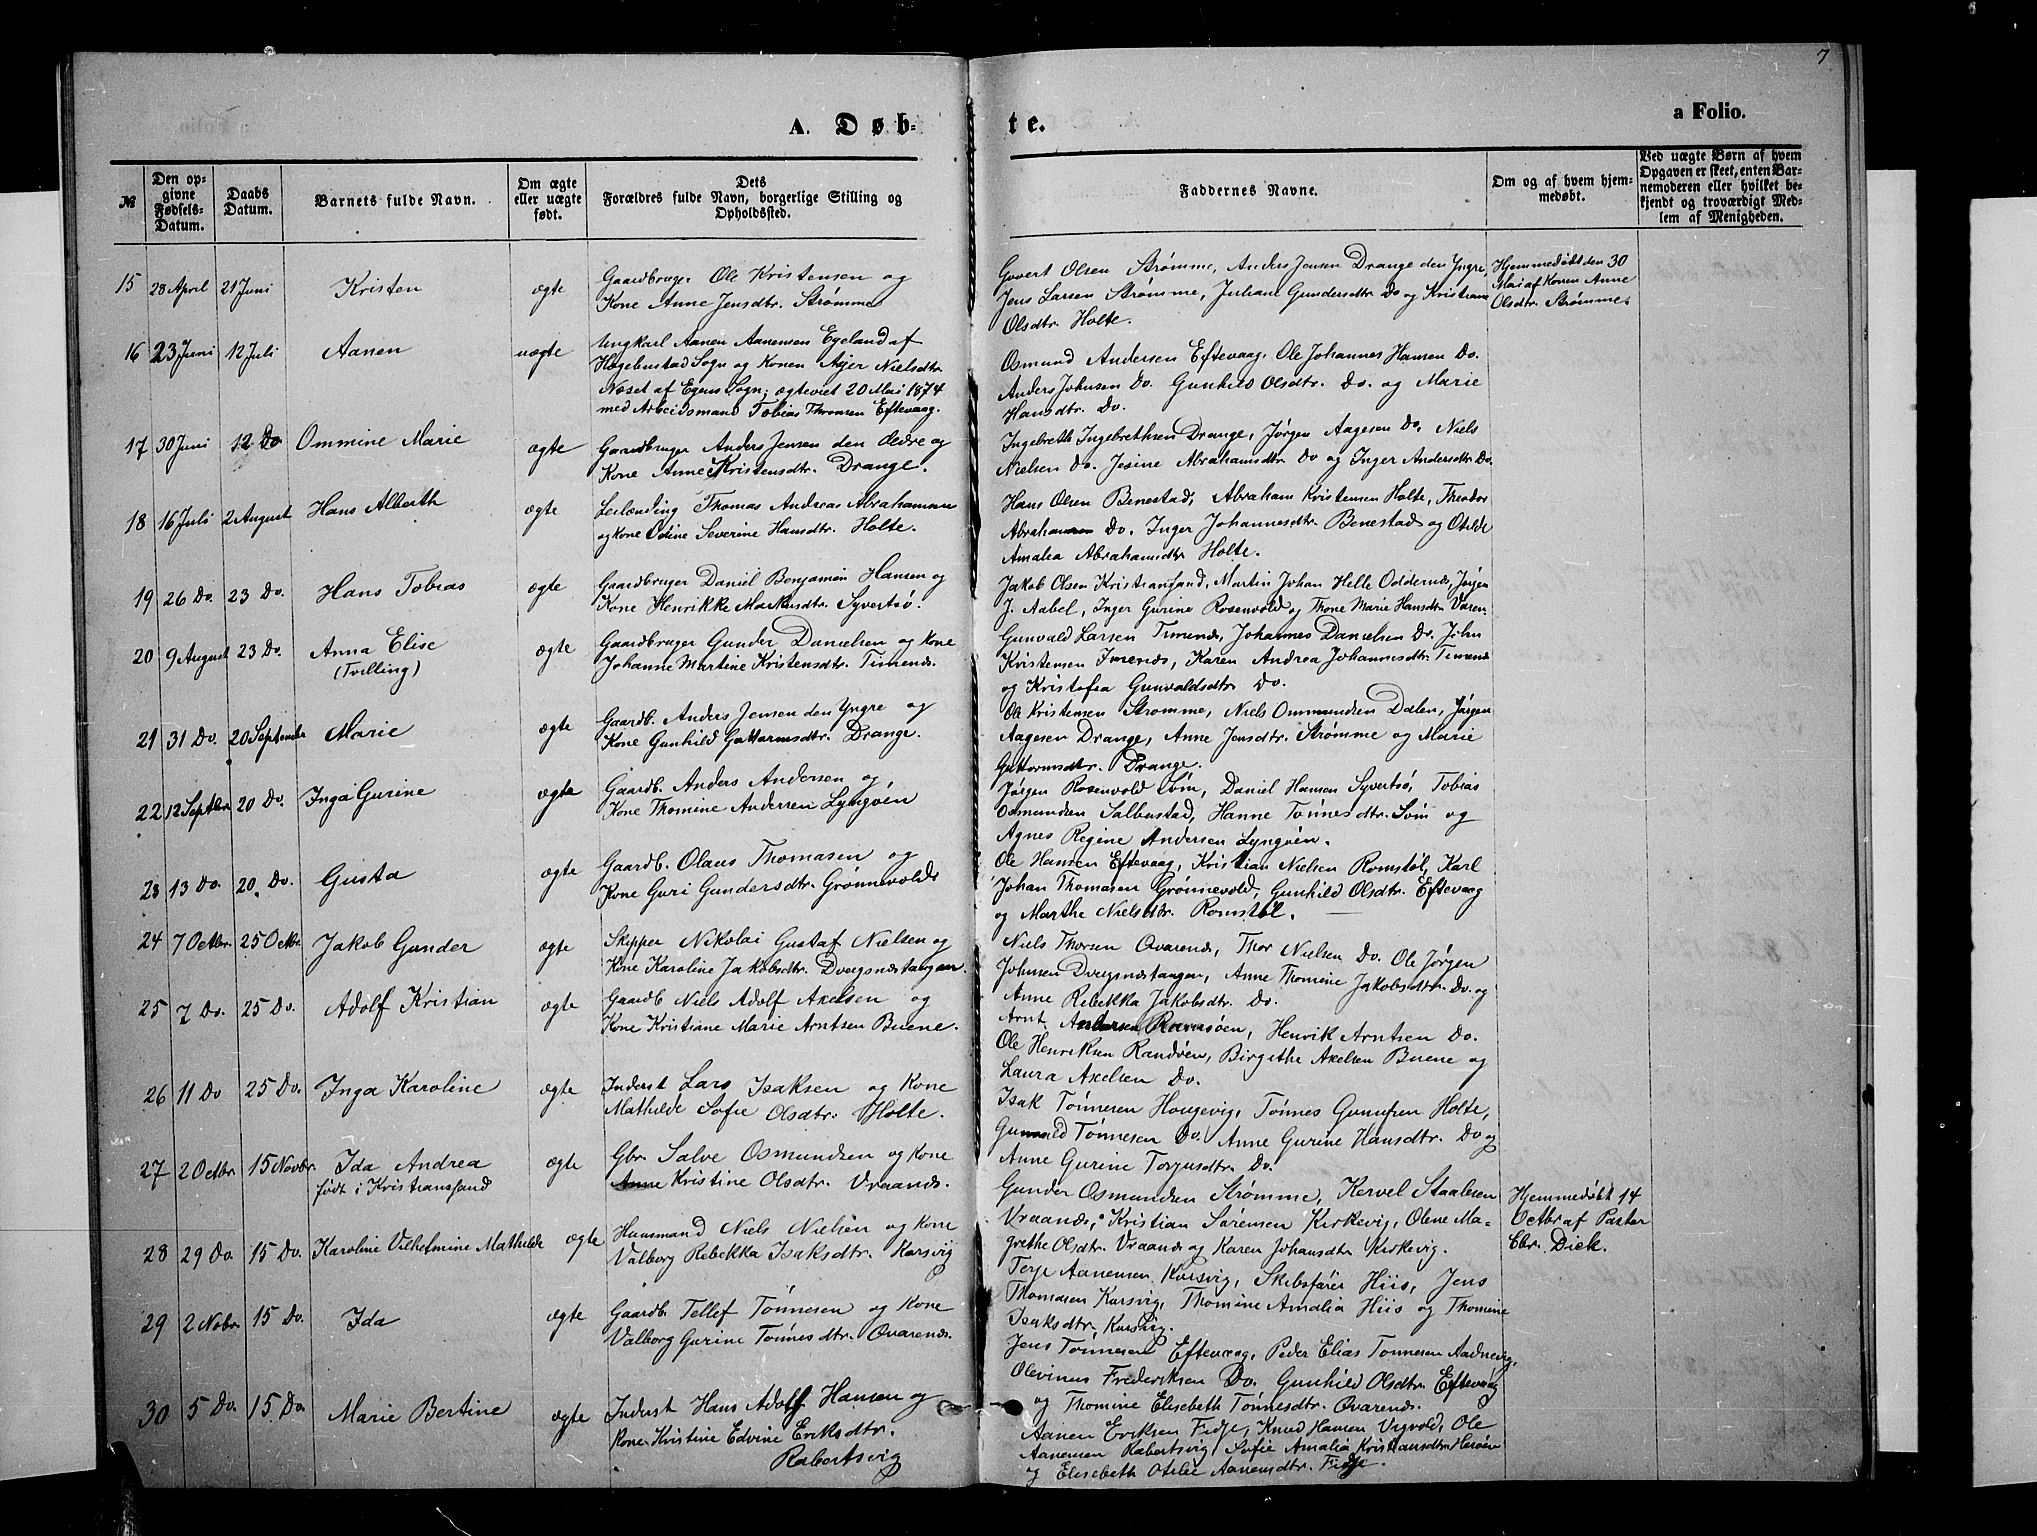 7
A. Døb-
te.
a Folio.
№
Den op-
givne
Fødsels-
Datum.
Daabs
Datum.
Barnets fulde Navn.
Om ægte
eller uægte
født.
Dets
Forældres fulde Navn, borgerlige Stilling og
Opholdssted.
Faddernes Navne.
Om og af hvem hjem-
medøbt.
Ved uægte Børn af hvem
Opgaven er skeet, enten Bar-
nemoderen eller hvilket be-
kjendt og troværdigt Med-
lem af Menigheden.
15 28 April 21 Juni Kristen ægte
Gaardbruger Ole Kristensen og
Kone Anne Jensdtr. Strømme
Govert Olsen Strømme, Anders Jensen Drange den Yngre,
Jens Larsen Strømme, Juliane Gundersdtr Do og Kristiane
Olsdtr. Holte.
Hjemmedøbt den 30
Mai af Konen Anne
Olsdtr. Strømme.
16 23 Juni 12 Juli Aanen uægte
Ungkarl Aanen Aanensen Egeland af
Hægebustad Sogn og Konen Asjer Nielsdtr
Næset af Egens Sogn; ægteviet 20 Mai 1874
med Arbeidsmand Tobias Thomsen Eftevaag.
Osmund Andersen Eftevaag, Ole Johannes Hansen Do.
Anders Johnsen Do. Gunhild Olsdtr. Do. og Marie
Hansdtr. Do.
17 30 Juni 12 Do Ommine Marie ægte
Gaardbruger Anders Jensen den ældre og
Kone Anne Kristensdtr. Drange.
Ingebreth Ingebrethsen Drange, Jørgen Aagesen Do, Niels
Nielsen Do. Jesine Abrahamsdtr Do og Inger Andersdtr. Do.
18 16 Juli 2 August Hans Alberth ægte
Leilænding Thomas Andreas Abrahamsen
og Kone Odine Severine Hansdtr. Holte.
Hans Olsen Benestad, Abraham Kristensen Holte, Theodor
Abrahamsen Do. Inger Johannesdtr. Benestad og Otilde
Amalia Abrahamsdtr Holte.
19 26 Do. 23 Do. Hans Tobias ægte
Gaardbruger Daniel Benjamin Hansen og
Kone Henrikke Markusdtr. Syvertsø.
Jakob Olsen Kristiansand, Martin Johan Helle Oddernæs, Jørgen
J. Aabel, Inger Gurine Rosenvold og Thone Marie Hansdtr. Varen
20 9 August 23 Do. Anna Elise
(Tvilling)
ægte
Gaardbruger Gunder Danielsen og Kone
Johanne Martine Kristensdtr. Timenæs.
Gunvald Larsen Timenæs, Johannes Danielsen Do. John
Kristensen Timenæs, Karen Andrea Johannesdtr. Timenæs
og Kristofia Gunvaldsdtr Do.
21 31 Do. 20 September Marie ægte
Gaardb. Anders Jensen den Yngre og
Kone Gunhild Guttormsdtr. Drange.
Ole Kristensen Strømme, Niels Ommundsen Dalen, Jørgen
Aagesen Drange, Anne Jensdtr. Strømme og Marie
Guttormsdtr. Drange.
22 12 Septbr 20 Do. Inga Gurine ægte
Gaardb. Anders Andersen og
Kone Thomine Andersen Lyngøen
Jørgen Rosenvold Søm, Daniel Hansen Syvertsø, Tobias
Osmundsen Salbustad, Hanne Tønnesdtr. Søm og
Agnes Regine Andersen Lyngøen.
23 13 Do. 20 Do. Gusta ægte
Gaardb. Olaus Thomasen og
Kone Guri Gundersdtr. Grønnevolds
Ole Hansen Eftevaag, Kristian Nielsen Romstøl, Karl
Johan Thomasen Grønnevold, Gunhild Olsdtr. Eftevaag
og Marthe Nielsdtr. Romstøl.
24 7 Octbr. 25 Octbr Jakob Gunder ægte
Skipper Nikolai Gustaf Nielsen og
Kone Karoline Jakobsdtr. Dvergsnæstangen.
Niels Thorsen Qvarenæs, Thor Nielsen Do. Ole Jørgen
Johnsen Dvergsnæstangen, Anne Thomine Jakobsdtr. Do. og
Anne Rebekka Jakobsdtr. Do.
25 7 Do. 25 Do. Adolf Kristian ægte
Gaardb Niels Adolf Axelsen og
Kone Kristiane Marie Arntsen Buene.
Arnt Andersen Randøen, Henrik Arntsen Do.
Ole Henriksen Randøen, Birgithe Axelsen Buene og
Laura Axelsen Do.
26 11 Do 25 Do. Inga Karoline ægte
Inderst Lars Isaksen og Kone
Mathilde Sofie Olsdtr. Holte.
Isak Tønnesen Hougevig, Tønnes Gunufsen Holte,
Tønnesen Do. Anne Gurine Hansdtr. Do og
Anne Gurine Torjusdtr. Do.
27 2 Octbr. 15 Novbr. Ida Andrea
født i Kristiansand
ægte
Gbr. Salve Osmundsen og Kone
Anne Kristine Olsdtr. Vraanæs.
Gunder Osmundsen Strømme, Kervel Staalesen
Vraanæs, Kristian Sørensen Kirkevig, Olene Ma-
grethe Olsdtr. Vraanæs og Karen Johansdtr Kirkevig.
Hjemmedøbt 14
Octbr af Pastor
Chr. Dick.
28 29 Do 15 Do. Karoline Vilhelmine Mathilde ægte
Huusmand Niels Nielsen og Kone
Valborg Rebekka Isaksdtr. Korsvig
Terje Aanensen Korsvig, Skibsfører Hiis, Jens
Thomasen Korsvig, Thomine Amalia Hiis og Thomine
Isaksdtr. Korsvig.
29 2 Nobr. 15 Do. Ida ægte
Gaardb. Tellef Tønnesen og Kone
Valborg Gurine Tønnesdtr. Qvarenæs.
Jens Tønnesen Eftevaag, Peder Elias Tønnesen Aadnevig,
Olevinus Frederiksen Do. Gunhild Olsdtr. Eftevaag
og Thomine Elisebeth Tønnesdtr. Qvarenæs.
30 5 Do. 15 Do. Marie Bertine ægte
Inderst Hans Adolf Hansen og
Kone Kristine Edvine Eriksdtr.
Rabertsvig
Aanen Eriksen Fidje, Knud Hansen Vrgvold, Ole
Aanensen Rabertsvig, Sofie Amalia Kristiansdtr. Herøen
og Elisebeth Otelie Aanensdtr. Fidje.